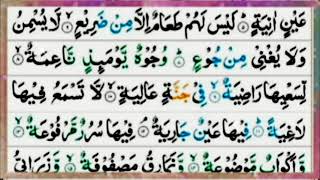 عَيْنٍ اٰنِيَةٍ ؕ لَيْسَ لَهُمْ طَعَامٌ اِلَّا مِنْ ضَرِيْعٍ ۙ لَّا يُسْمِنُ
وَلَا يُغْنِيْ مِنْ جُوْعٍ ؕ وُجُوْهٌ يَّوْمَىِٕذٍ نَّاعِمَةٌ ۙ
لِّسَعْيِهَا رَاضِيَةٌ ۙ فِيْ جَنَّةٍ عَالِيَةٍ ۙ لَّا تَسْمَعُ فِيْهَا
لَاغِيَةً ؕ فِيْهَا عَيْنٌ جَارِيَةٌ ۘ فِيْهَا سُرُرٌ مَّرْفُوْعَةٌ ۙ
وَّاَكْوَابٌ مَّوْضُوْعَةٌ ۙ وَّنَمَارِقُ مَصْفُوْفَةٌ ۙ وَّزَرَابِيُّ